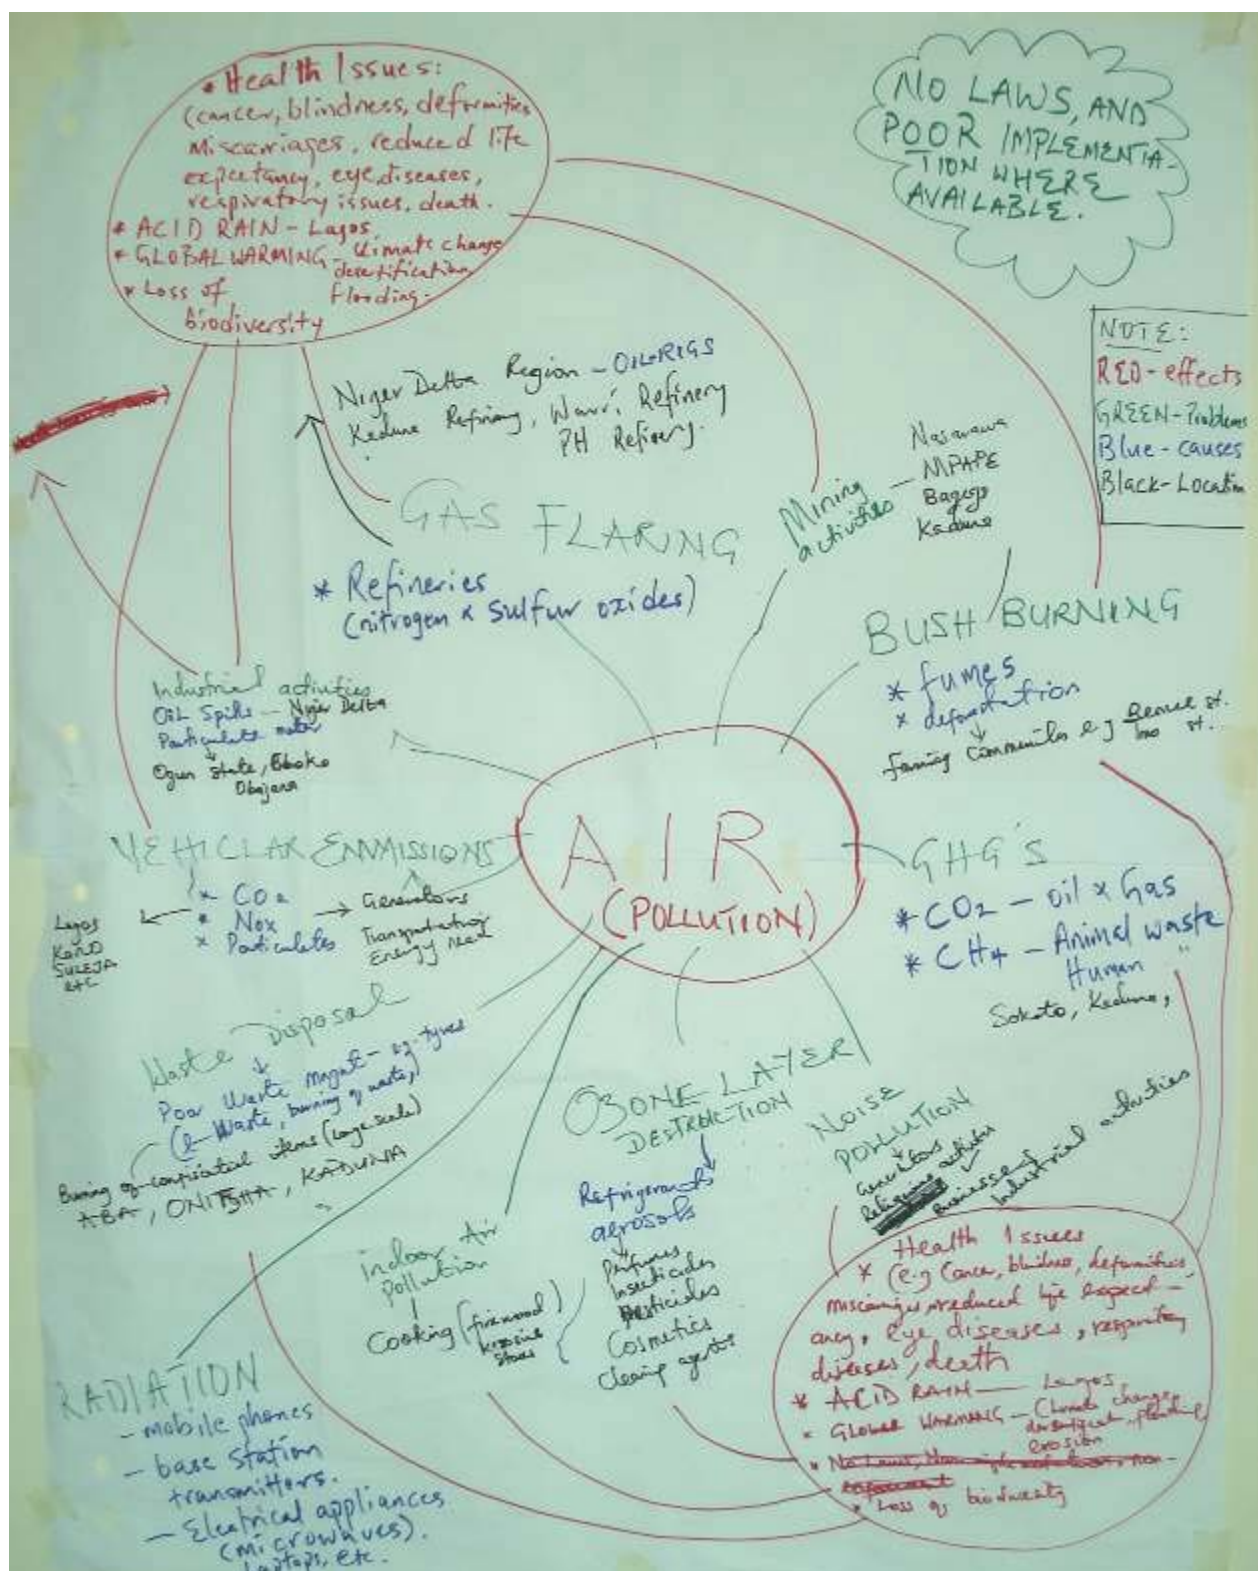 * Health Issues:
(cancer, blindness, deformities
miscarriages, reduced life
expectancy, eye diseases,
respiratory issues, death.
* ACID RAIN - Lagos
* GLOBAL WARMING - Climate change
desertification
flooding.
* Loss of
biodiversity
NO LAWS, AND
POOR IMPLEMENTA-
TION WHERE
AVAILABLE.
NOTE:
RED - effects
GREEN - Problems
Blue - causes
Black - Location
Niger Delta Region - OIL RIGS
Warri Refinery
PH Refinery.
GAS FLARING
* Refineries
(nitrogen & sulfur oxides)
Mining
activities
Nasarawa
MPAPE
Kaduna
BUSH BURNING
* fumes
* deforestation
farming communities e.g Benue st.
Imo st.
Industrial activities
OIL Spills - Niger Delta
Particulate matter
Ogun State,
Obajana
AIR
(POLLUTION)
VEHICLAR EMMISSIONS
* CO2
* Nox
* Particulates
Generators
Transportation
Energy need
Lagos
KANO
SULEJA
etc
GHG'S
* CO2 - oil & Gas
* CH4 - Animal waste
Human "
Sokoto, Kaduna,
Waste Disposal
Poor Waste mngnt - eg. tyres
(e-Waste, burning of waste,)
Burning of confiscated items (large scale)
ABA, ONITSHA, KADUNA
OZONE LAYER
DESTRUCTION
Refrigerants
aerosols
Perfumes
Insecticides
Pesticides
Cosmetics
cleaning agents
NOISE
POLLUTION
Generators
Religious activities
Businesses
Industrial activities
indoor Air
Pollution
Cooking (firewood)
stoves
RADIATION
- mobile phones
- base station
transmitters.
- Electrical appliances
(microwaves).
Laptops, etc.
Health Issues
* (e.g Cancer, blindness, deformities,
miscarriages, reduced life expect-
ancy, eye diseases, respiratory
diseases, death
* ACID RAIN - Lagos,
* GLOBAL WARMING - Climate change,
flooding,
erosion
* No Laws,
* Loss of biodiversity